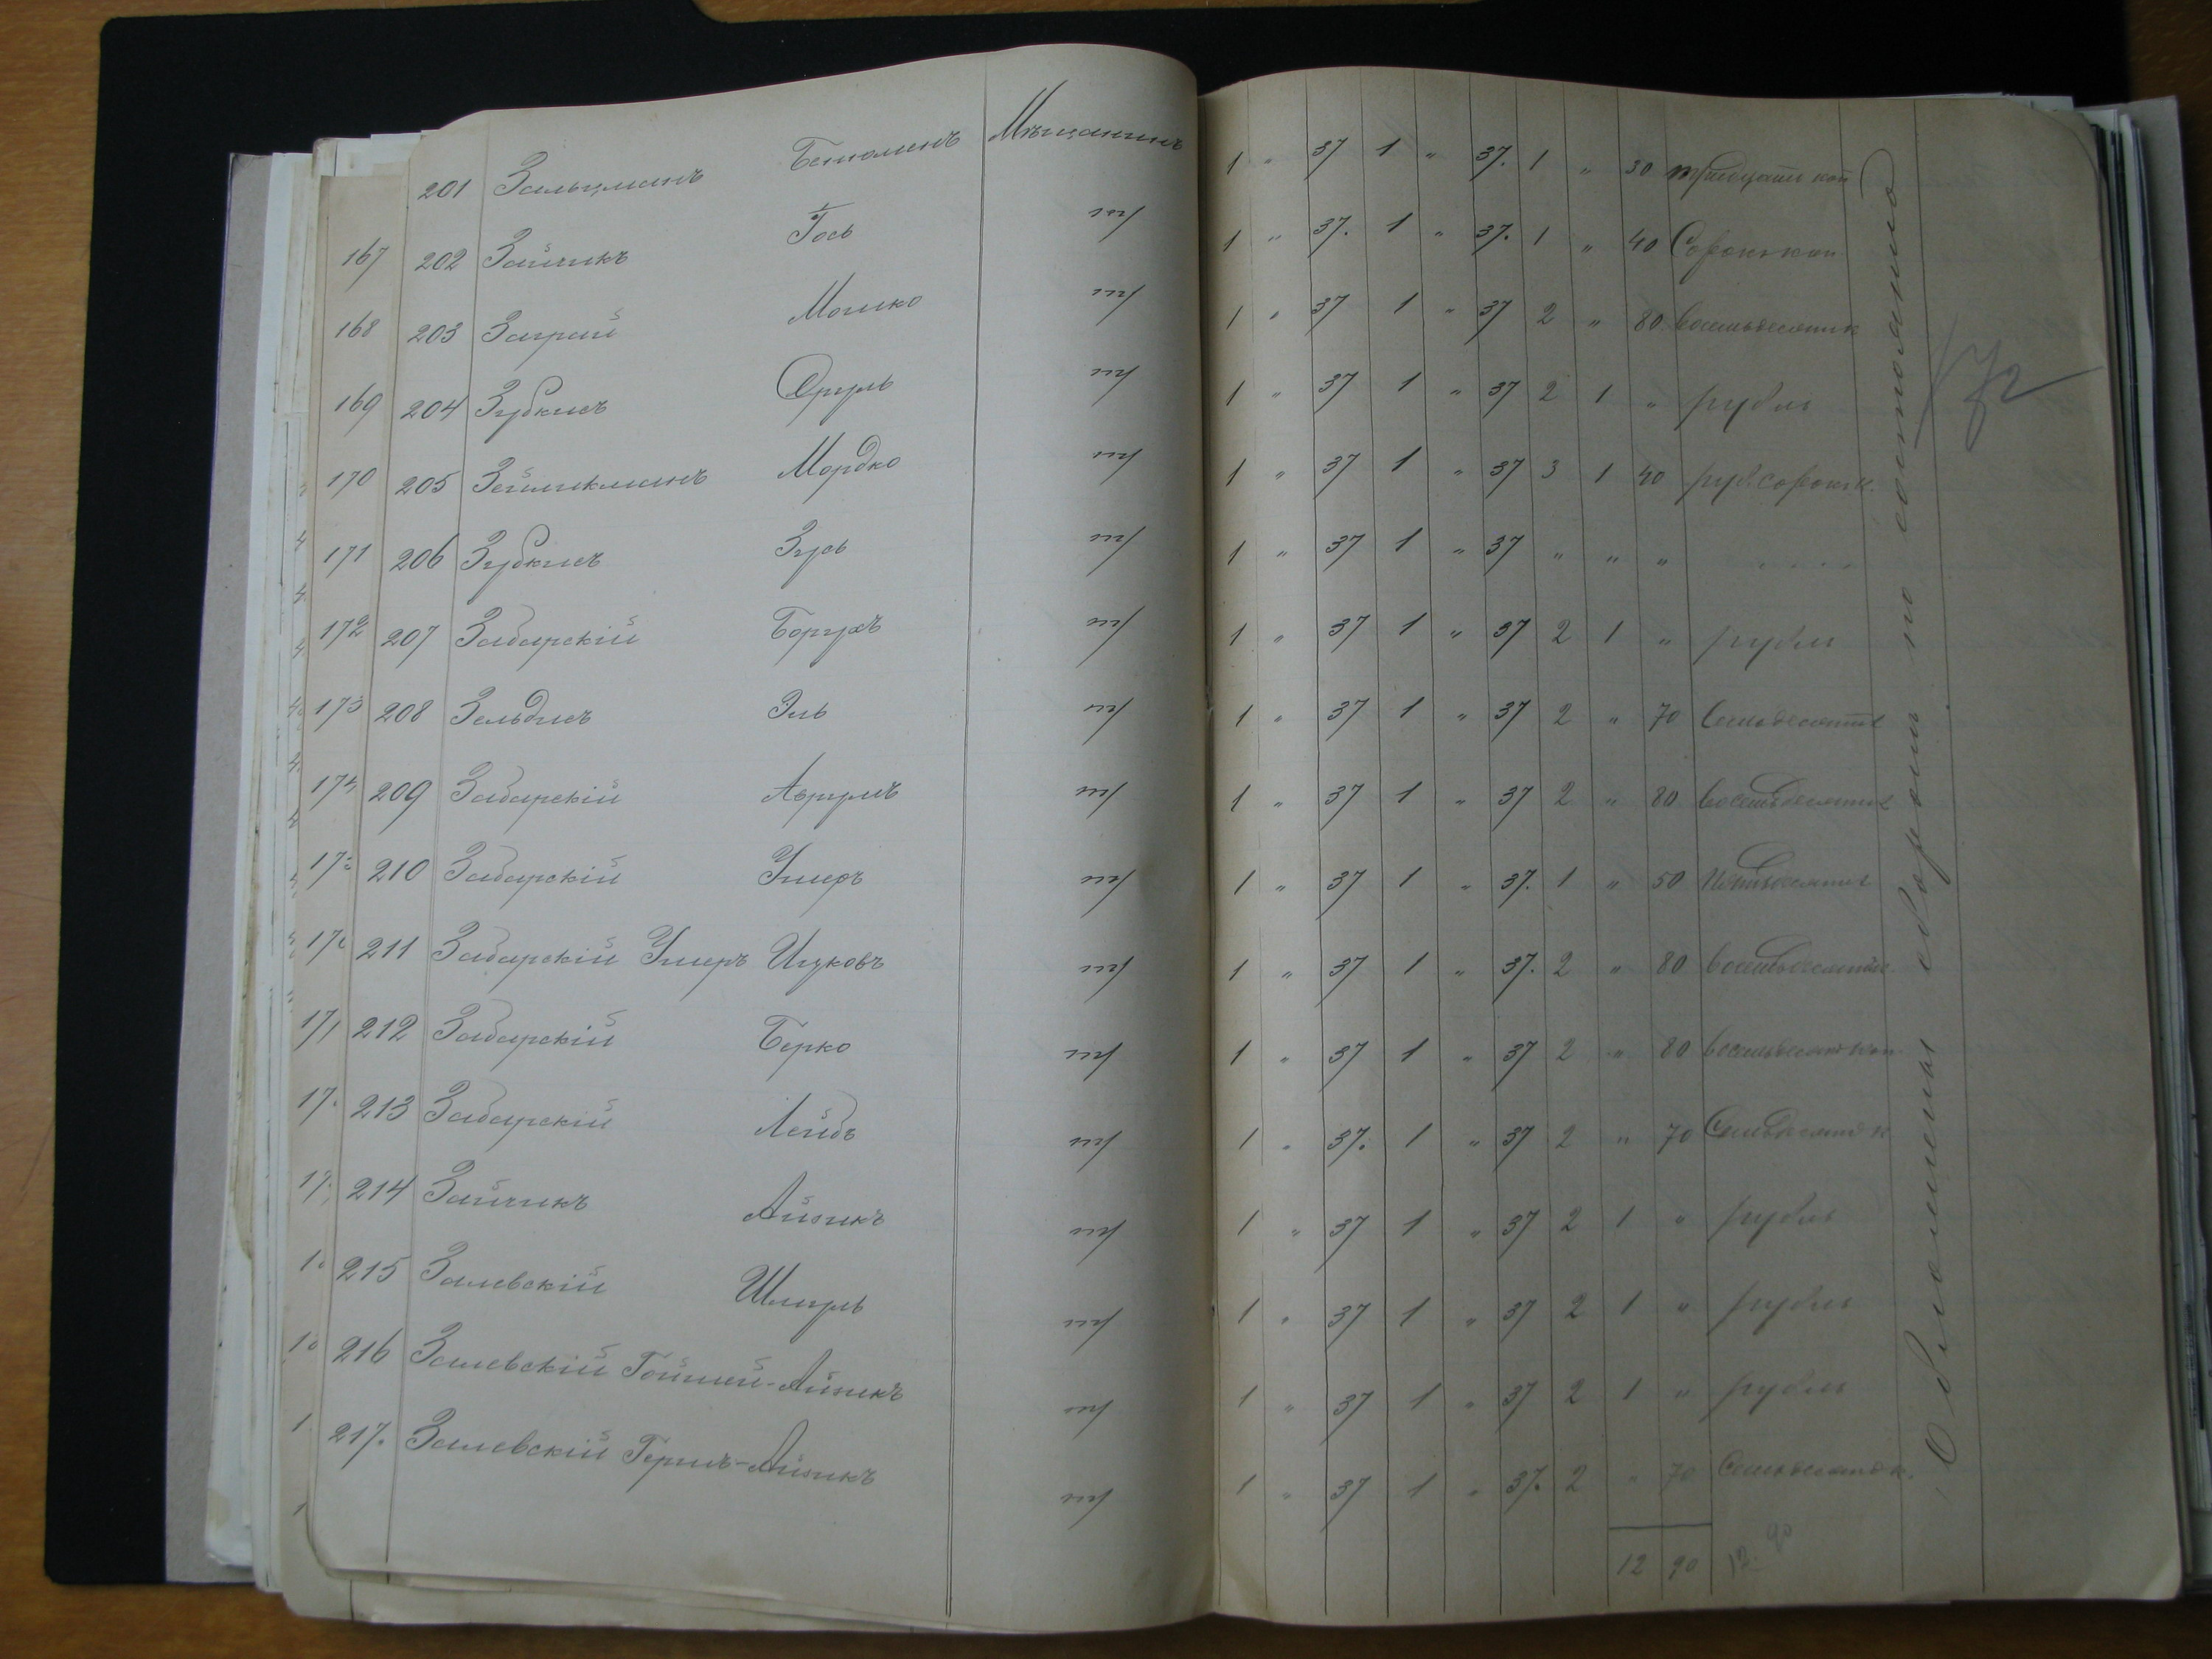 201 Зальцманъ Беноменъ Мѣщанинъ 1 " 37 1 " 37. 1 " 30 тридцать коп
167 202 Зайчикъ Гось тж 1 " 37. 1 " 37. 1 " 40 Сорокъ коп
168 203 Заграй Мошко тж 1 " 37 1 " 37 2 " 80 восемьдесятъ к
169 204 Зубкисъ Сруль тж 1 " 37 1 " 37 2 1 " рубль
170 205 Мордко тж 1 " 37 1 " 37 3 1 40 руб. сорокъ к.
171 206 Зубкисъ Зусь тж 1 " 37 1 " 37 " " "
172 207 Забарскій Борухъ тж 1 " 37 1 " 37 2 1 " рубль
173 208 Зельдисъ Эль тж 1 " 37 1 " 37 2 " 70 семьдесятъ
174 209 Забарскій Аврумъ тж 1 " 37 1 " 37 2 " 80 восемьдесятъ
210 Забарскій Умеръ тж 1 " 37 1 " 37. 1 " 50 пятьдесятъ
211 Забарскій Умеръ Ицковъ тж 1 " 37 1 " 37. 2 " 80 восемьдесятъ к.
212 Забарскій Берко тж 1 " 37 1 " 37 2 " 80 восемьдесят коп
213 Забарскій Лейбъ тж 1 " 37. 1 " 37 2 " 70 Семьдесятъ к
214 Зайчикъ Айзикъ тж 1 " 37 1 " 37 2 1 " рубль
215 Залевскій Шмуль тж 1 " 37 1 " 37 2 1 " рубль
216 Залевскій Айзикъ тж 1 " 37 1 " 37 2 1 " рубль
217. Залевскій Гершъ-Айзикъ тж 1 " 37 1 " 37. 2 " 70 Семьдесятъ к.
12 90 12 90
Обложены сборомъ по состоянію
172